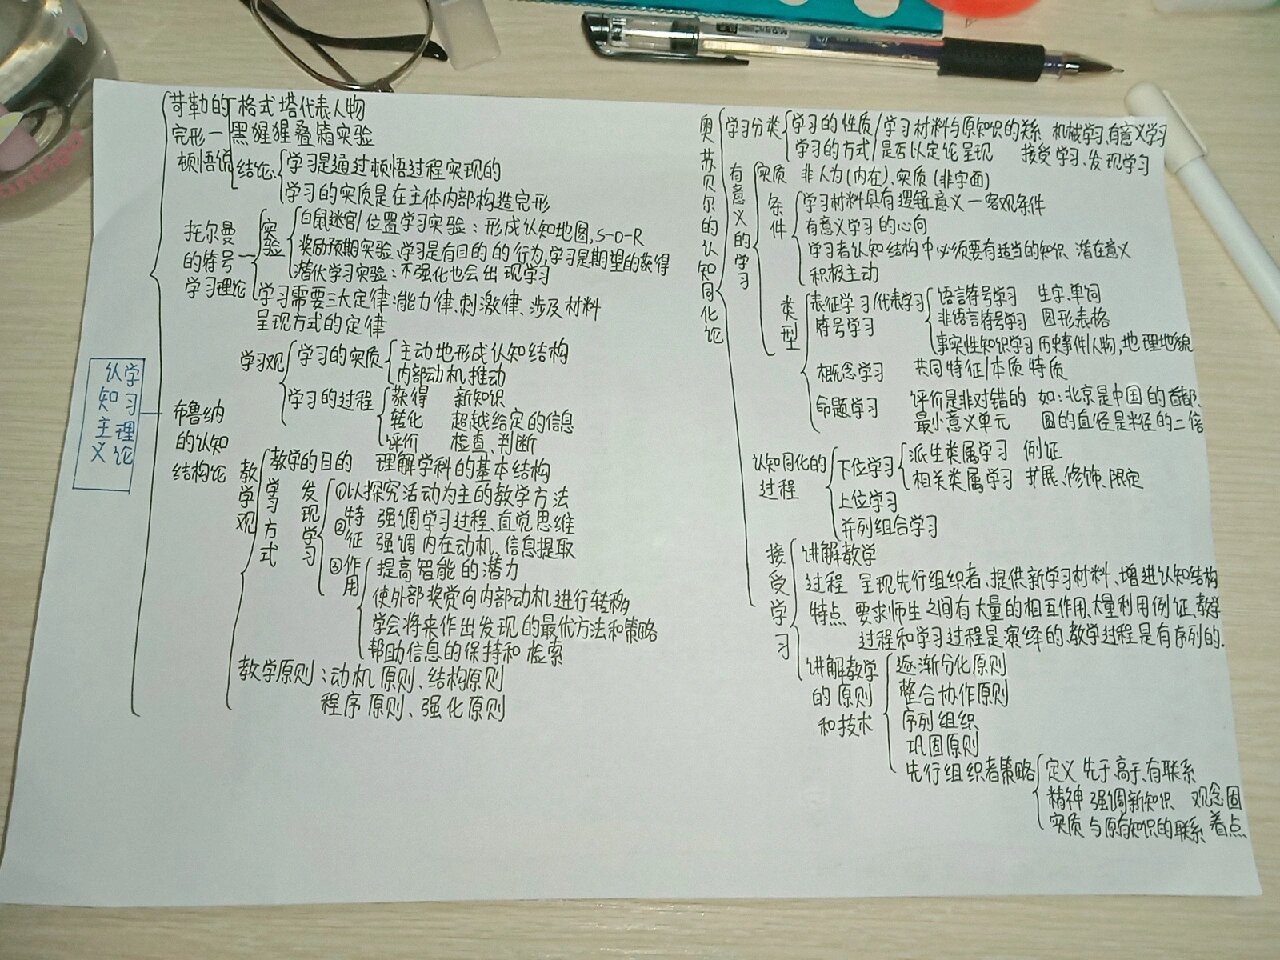 认知主义
学习理论
苛勒的
完形一
顿悟说
格式塔代表人物
黑猩猩叠箱实验
结论
学习是通过顿悟过程实现的
学习的实质是在主体内部构造完形
托尔曼
的符号
学习理论
实验
白鼠迷宫/位置学习实验：形成认知地图,S-O-R
奖励预期实验:学习是有目的的行为,学习是期望的获得
潜伏学习实验：不强化也会出现学习
学习需要三大定律:能力律、刺激律、涉及材料
呈现方式的定律
布鲁纳
的认知
结构论
学习观
学习的实质
主动地形成认知结构
内部动机推动
学习的过程
获得 新知识
转化 超越给定的信息
评价 检查、判断
教学观
教学的目的 理解学科的基本结构
学习方式
发现学习
①以探究活动为主的教学方法
②特征
强调学习过程、直觉思维
强调内在动机、信息提取
③作用
提高智能的潜力
使外部奖赏向内部动机进行转移
学会将来作出发现的最优方法和策略
帮助信息的保持和检索
教学原则：动机原则、结构原则
程序原则、强化原则
奥苏贝尔的认知同化论
学习分类
学习的性质 学习材料与原知识的关系 机械学习、有意义学习
学习的方式 是否以定论呈现 接受学习、发现学习
有意义的学习
实质 非人为(内在)、实质(非字面)
条件
学习材料具有逻辑意义一客观条件
有意义学习的心向
学习者认知结构中必须要有适当的知识 潜在意义
积极主动
类型
表征学习/代表学习
符号学习
语言符号学习 生字、单词
非语言符号学习 图形表格
事实性知识学习 历史事件/人物,地理地貌
概念学习 共同特征/本质特质
命题学习
评价是非对错的 如:北京是中国的首都
最小意义单元 圆的直径是半径的二倍
认知同化的
过程
下位学习
派生类属学习 例证
相关类属学习 扩展、修饰、限定
上位学习
并列组合学习
接受学习
讲解教学
过程 呈现先行组织者、提供新学习材料、增进认知结构
特点 要求师生之间有大量的相互作用、大量利用例证、教学
过程和学习过程是演绎的、教学过程是有序列的.
讲解教学
的原则
和技术
逐渐分化原则
整合协作原则
序列组织
巩固原则
先行组织者策略
定义 先于、高于、有联系
精神 强调新知识 观念固
实质 与原有知识的联系 着点